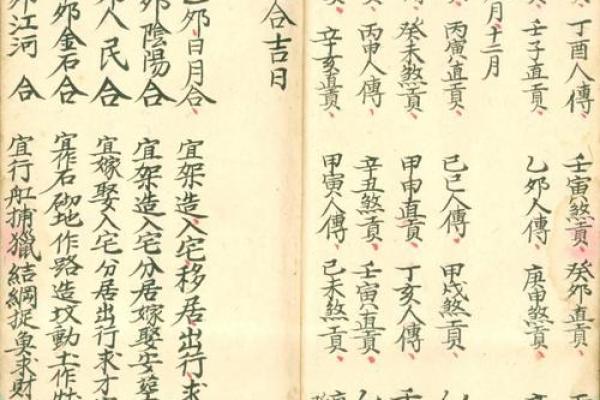 丁酉人傳、壬寅煞貢、癸夘直貢、
壬子直貢、乙夘人傳、庚申煞貢、
月、十二月
丙寅直貢、己巳人傳、甲戌煞貢、
癸未煞貢、甲申直貢、丁亥人傳、壬
丙申人傳、辛丑煞貢、壬寅直貢、
辛亥直貢、甲寅人傳、己未煞貢、
合吉日
乙夘日月合、宜架造入宅移居出行求
夘陰陽合、宜架造入宅分居嫁娶安葬
人民合 宜嫁娶入宅分居出行求才
夘金石合 宜作石砌地作路造坟動土作
江河合 宜行舡捕獵結綱捉魚求財